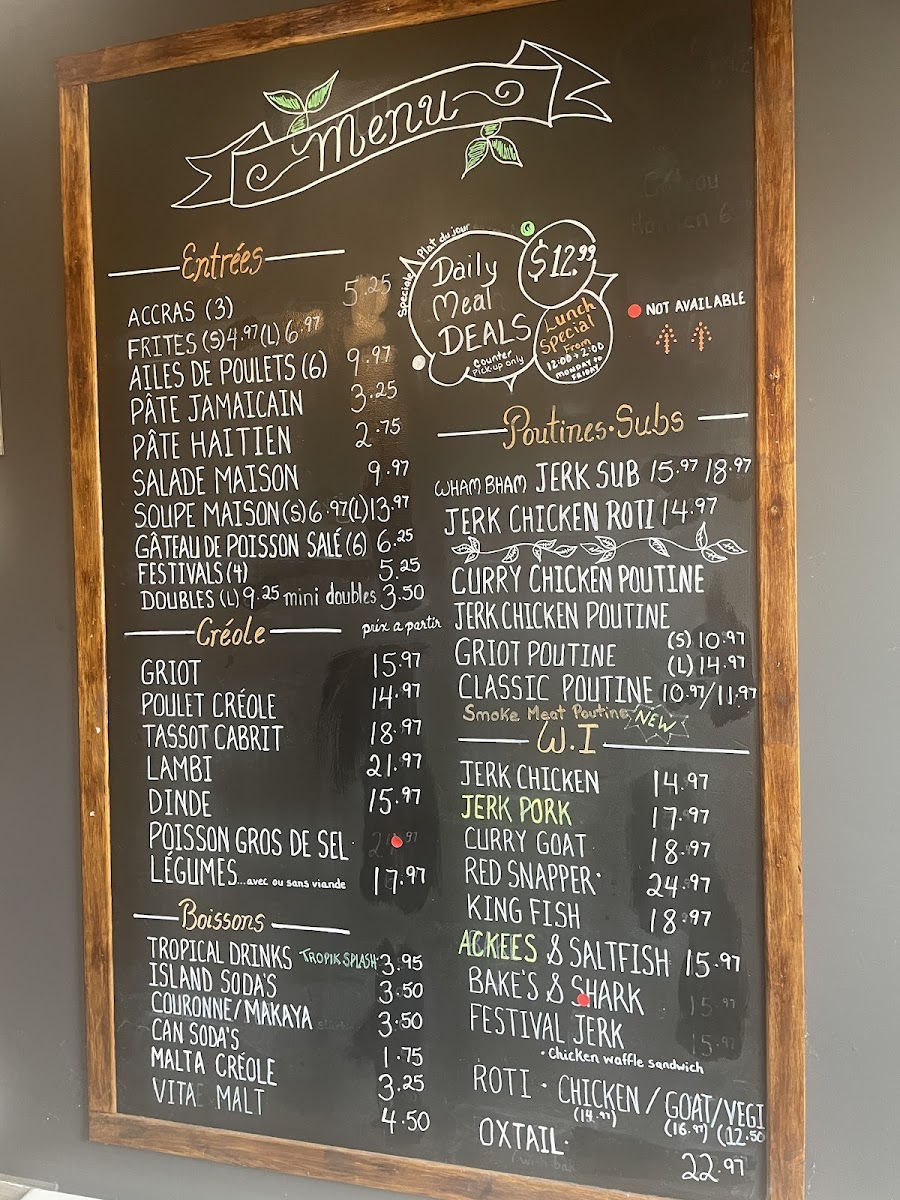 Menu
Entrées
ACCRAS (3) 5.25
FRITES (S) 4.97 (L) 6.97
AILES DE POULETS (6) 9.97
PÂTE JAMAICAIN 3.25
PÂTE HAITIEN 2.75
SALADE MAISON 9.97
SOUPE MAISON (S) 6.97 (L) 13.97
GÂTEAU DE POISSON SALÉ (6) 6.25
FESTIVALS (4) 5.25
DOUBLES (L) 9.25 mini doubles 3.50
Créole prix a partir
GRIOT 15.97
POULET CRÉOLE 14.97
TASSOT CABRIT 18.97
LAMBI 21.97
DINDE 15.97
POISSON GROS DE SEL
LÉGUMES...avec ou sans viande 17.97
Boissons
TROPICAL DRINKS TROPIK SPLASH 3.95
ISLAND SODA'S 3.50
COURONNE/MAKAYA 3.50
CAN SODA'S 1.75
MALTA CRÉOLE 3.25
VITA MALT 4.50
Speciale Plat du jour
Daily
Meal
DEALS
Counter
Pick-up only
$12.99
Lunch
Special
From
12:00 → 2:00
MONDAY to
FRIDAY
NOT AVAILABLE
Poutines · Subs
WHAM BHAM JERK SUB 15.97 18.97
JERK CHICKEN ROTI 14.97
CURRY CHICKEN POUTINE
JERK CHICKEN POUTINE
(S) 10.97
GRIOT POUTINE (L) 14.97
CLASSIC POUTINE 10.97/11.97
Smoke Meat Poutine NEW
W.I
JERK CHICKEN 14.97
JERK PORK 17.97
CURRY GOAT 18.97
RED SNAPPER· 24.97
KING FISH 18.97
ACKEES & SALTFISH 15.97
BAKE'S & SHARK 15.97
FESTIVAL JERK 15.97
·chicken waffle sandwich
ROTI · CHICKEN / GOAT/VEGI
(14.97) (16.97) (12.50
OXTAIL· 22.97